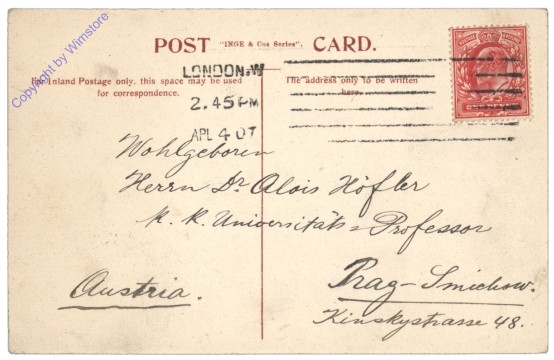 Copyright by Wimstore
POST "INGE & Cos Series". CARD.
For Inland Postage only, this space may be used
for correspondence.
The address only to be written
here.
LONDON.W
2.45PM
APL 4 07
Wohlgeboren
Herrn Dr Alois Höfler
K. K. Universitäts-Professor
Prag-Smichow.
Kinskystrasse 48.
Austria.